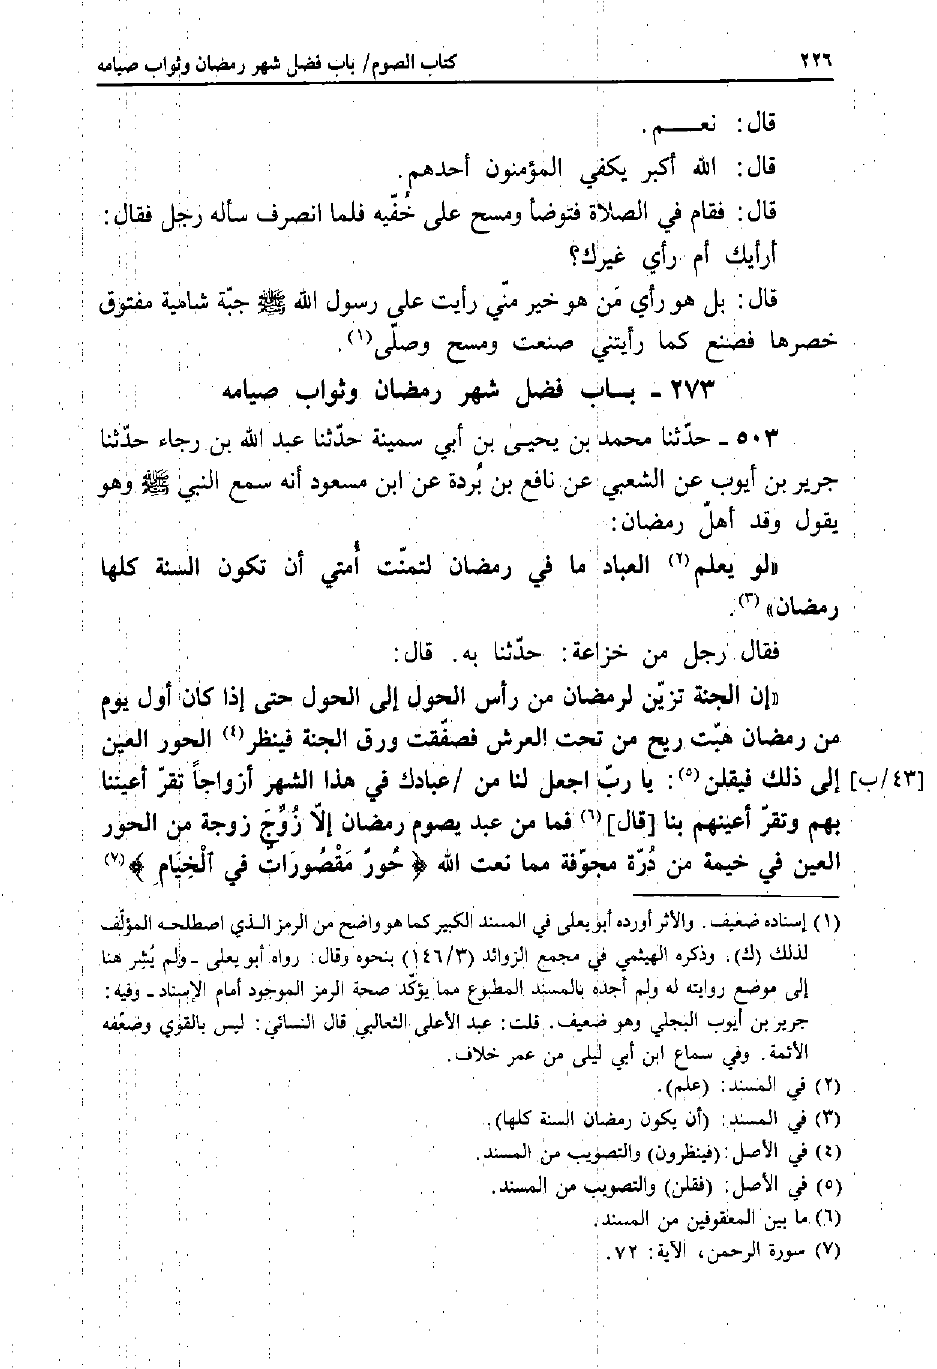 ٢٢٦ كتاب الصوم/ باب فضل شهر رمضان وثواب صيامه
قال: نعـــم.
قال: الله أكبر يكفي المؤمنون أحدهم.
قال: فقام في الصلاة فتوضأ ومسح على خُفّيه فلما انصرف سأله رجل فقال:
أرأيك أم رأي غيرك؟
قال: بل هو رأي مَن هو خير منّي رأيت على رسول الله ﷺ جبّة شامية مفتوق
خصرها فصنع كما رأيتني صنعت ومسح وصلّى(١).
٢٧٣ ـ بـاب فضل شهر رمضان وثواب صيامه
٥٠٣ ـ حدّثنا محمد بن يحيى بن أبي سمينة حدّثنا عبد الله بن رجاء حدّثنا
جرير بن أيوب عن الشعبي عن نافع بن بُردة عن ابن مسعود أنه سمع النبي ﷺ وهو
يقول وقد أهلّ رمضان:
«لو يعلم(٢) العباد ما في رمضان لتمنّت أُمتي أن تكون السنة كلها
رمضان»(٣).
فقال رجل من خزاعة: حدّثنا به. قال:
«إن الجنة تزيّن لرمضان من رأس الحول إلى الحول حتى إذا كان أول يوم
من رمضان هبّت ريح من تحت العرش فصفّقت ورق الجنة فينظر(٤) الحور العين
[٤٣/ب] إلى ذلك فيقلن(٥): يا ربّ اجعل لنا من /عبادك في هذا الشهر أزواجاً تقرّ أعيننا
بهم وتقرّ أعينهم بنا [قال](٦) فما من عبد يصوم رمضان إلّا زُوِّجَ زوجة من الحور
العين في خيمة من دُرّة مجوّفة مما نعت الله ﴿حُورٌ مَقْصُورَاتٌ في ٱلْخِيَام﴾(٧)
(١) إسناده ضعيف. والأثر أورده أبو يعلى في المسند الكبير كما هو واضح من الرمز الـذي اصطلحـه المؤلّف
لذلك (ك). وذكره الهيثمي في مجمع الزوائد (١٤٦/٣) بنحوه وقال: رواه أبو يعلى ـ ولم يُشِر هنا
إلى موضع روايته له ولم أجده بالمسند المطبوع مما يؤكّد صحة الرمز الموجود أمام الإسناد ـ وفيه:
جرير بن أيوب البجلي وهو ضعيف. قلت: عبد الأعلى الثعالبي قال النسائي: ليس بالقوي وضعّفه
الأئمة. وفي سماع ابن أبي ليلى من عمر خلاف.
(٢) في المسند: (علم).
(٣) في المسند: (أن يكون رمضان السنة كلها).
(٤) في الأصل: (فينظرون) والتصويب من المسند.
(٥) في الأصل: (فقلن) والتصويب من المسند.
(٦) ما بين المعقوفين من المسند.
(٧) سورة الرحمن، الآية: ٧٢.